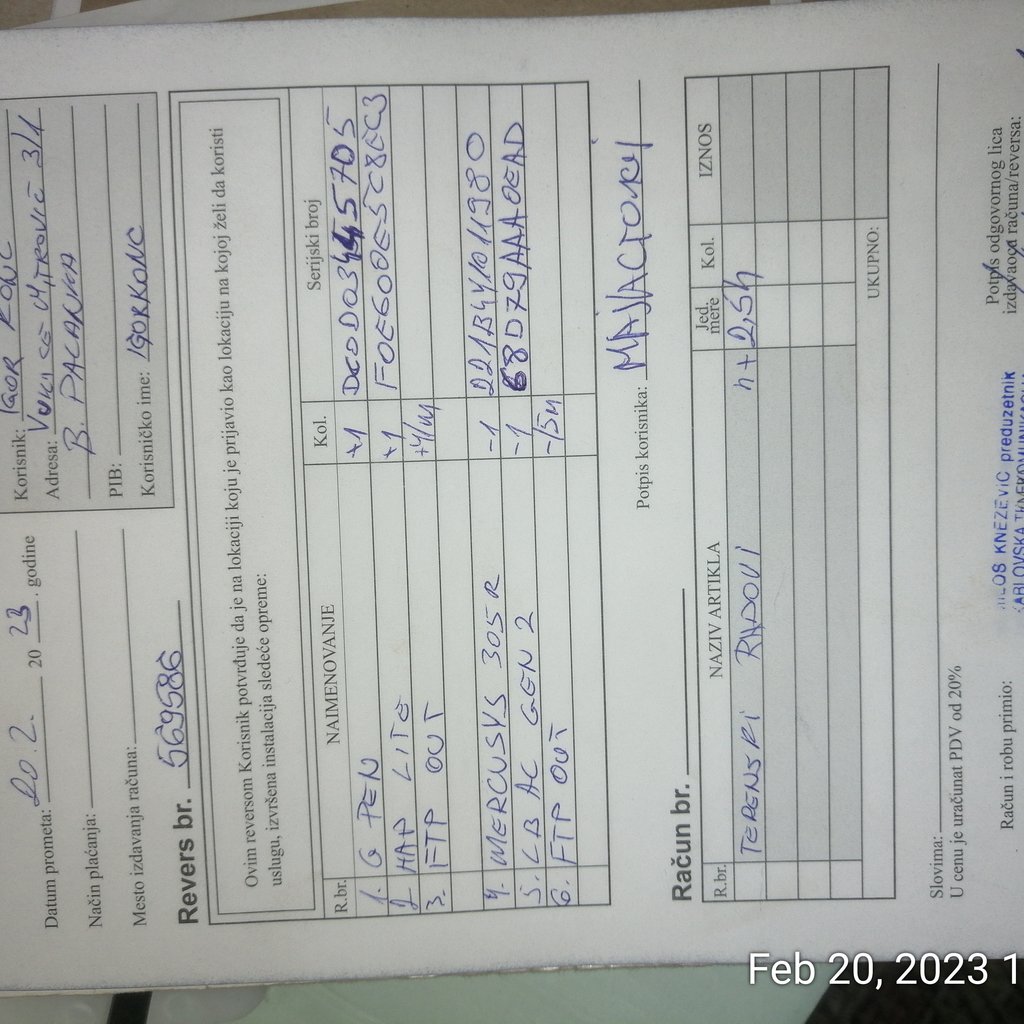 Datum prometa: 20.2. 20 23. godine
Način plaćanja:
Mesto izdavanja računa:
Korisnik: IGOR KONC
Adresa: VUKICE MITROVIĆ 3/1
B. PALANKA
PIB:
Korisničko ime: IGORKONC
Revers br. 569586
Ovim reversom Korisnik potvrđuje da je na lokaciji koju je prijavio kao lokaciju na kojoj želi da koristi
uslugu, izvršena instalacija sledeće opreme:
R.br. NAIMENOVANJE Kol. Serijski broj
1. G PEN +1
2 HAP LITE +1 F0E600E5C8EC3
3. FTP OUT
4. MERCUSYS 305R -1
5. LB AC GEN 2 -1 68D79AAA0EAD
6. FTP OUT -15M
Potpis korisnika:
Račun br.
R.br. NAZIV ARTIKLA Jed. mere Kol. IZNOS
TERENSKI RADOVI h + 2,5h
UKUPNO:
Slovima:
U cenu je uračunat PDV od 20%
Račun i robu primio:
Potpis odgovornog lica
izdavaoca računa/reversa:
KNEŽEVIĆ preduzetnik
Feb 20, 2023 1